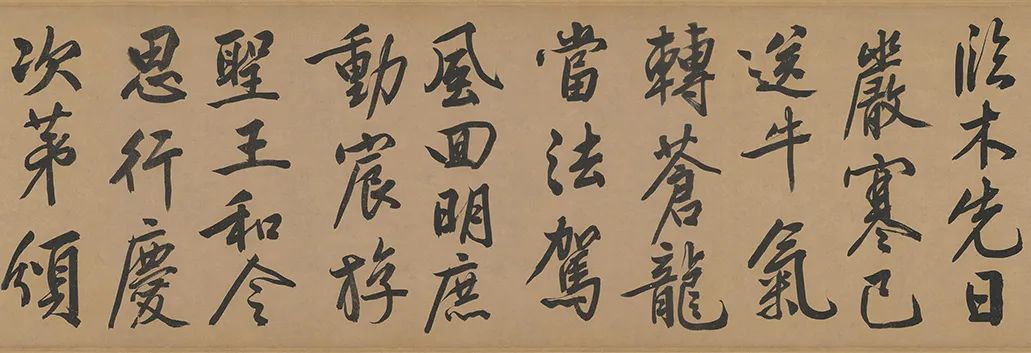 木先日
嚴寒已
送牛氣
轉蒼龍
當法駕
風回明庶
動宸游
聖王和令
思行慶
次第須